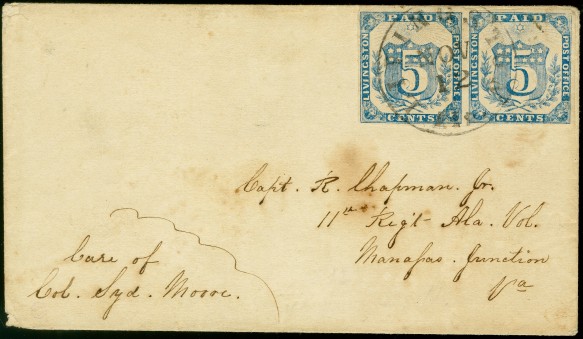 PAID PAID
LIVINGSTON 5 POST OFFICE LIVINGSTON 5 POST OFFICE
CENTS CENTS
Capt. R. Chapman. Jr.
11th Reg't Ala. Vol.
Manassas. Junction
Va
Care of
Col. Syd. Moore.